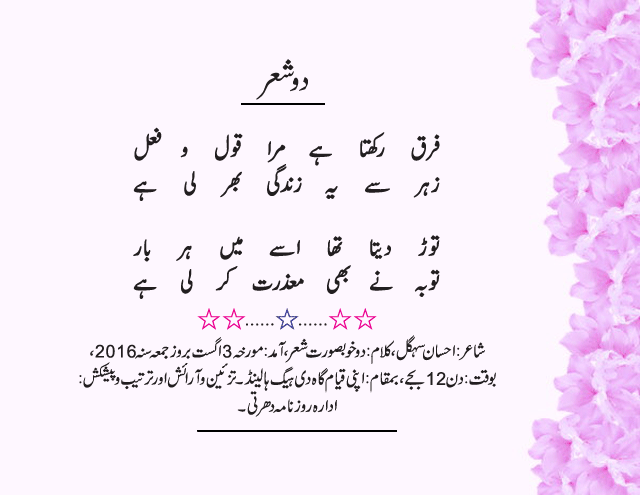 دو شعر
فرق رکھتا ہے مرا قول و فعل
زہر سے یہ زندگی بھر لی ہے
توڑ دیتا تھا اسے میں ہر بار
توبہ نے بھی معذرت کر لی ہے
☆☆......☆......☆☆
شاعر: احسان سہگل، کلام: دو خوبصورت شعر، آمد: مورخہ 3 اگست بروز جمعہ سنہ 2016،
بوقت: دن 12 بجے، بمقام: اپنی قیام گاہ دی ہیگ ہالینڈ۔ تزئین و آرائش اور ترتیب و پیشکش:
ادارہ روزنامہ دھرتی۔